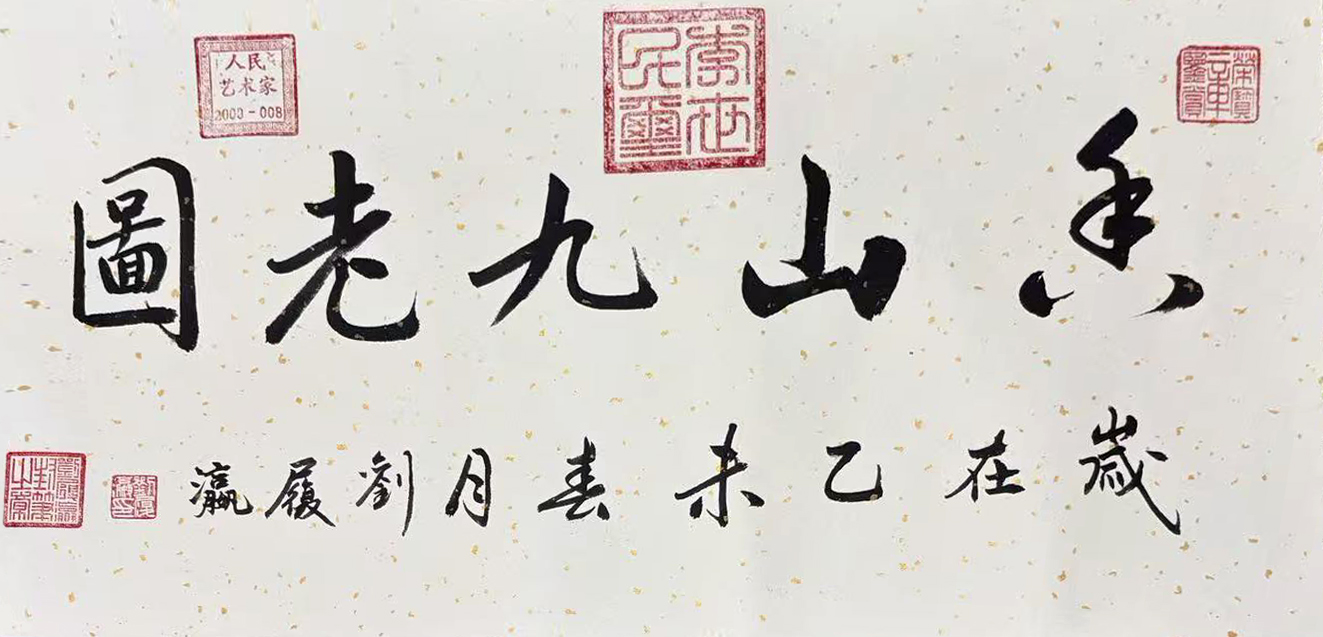 人民
艺术家
2000-008
李世民璽
香山九老圖
歲在乙未春月劉履瀛